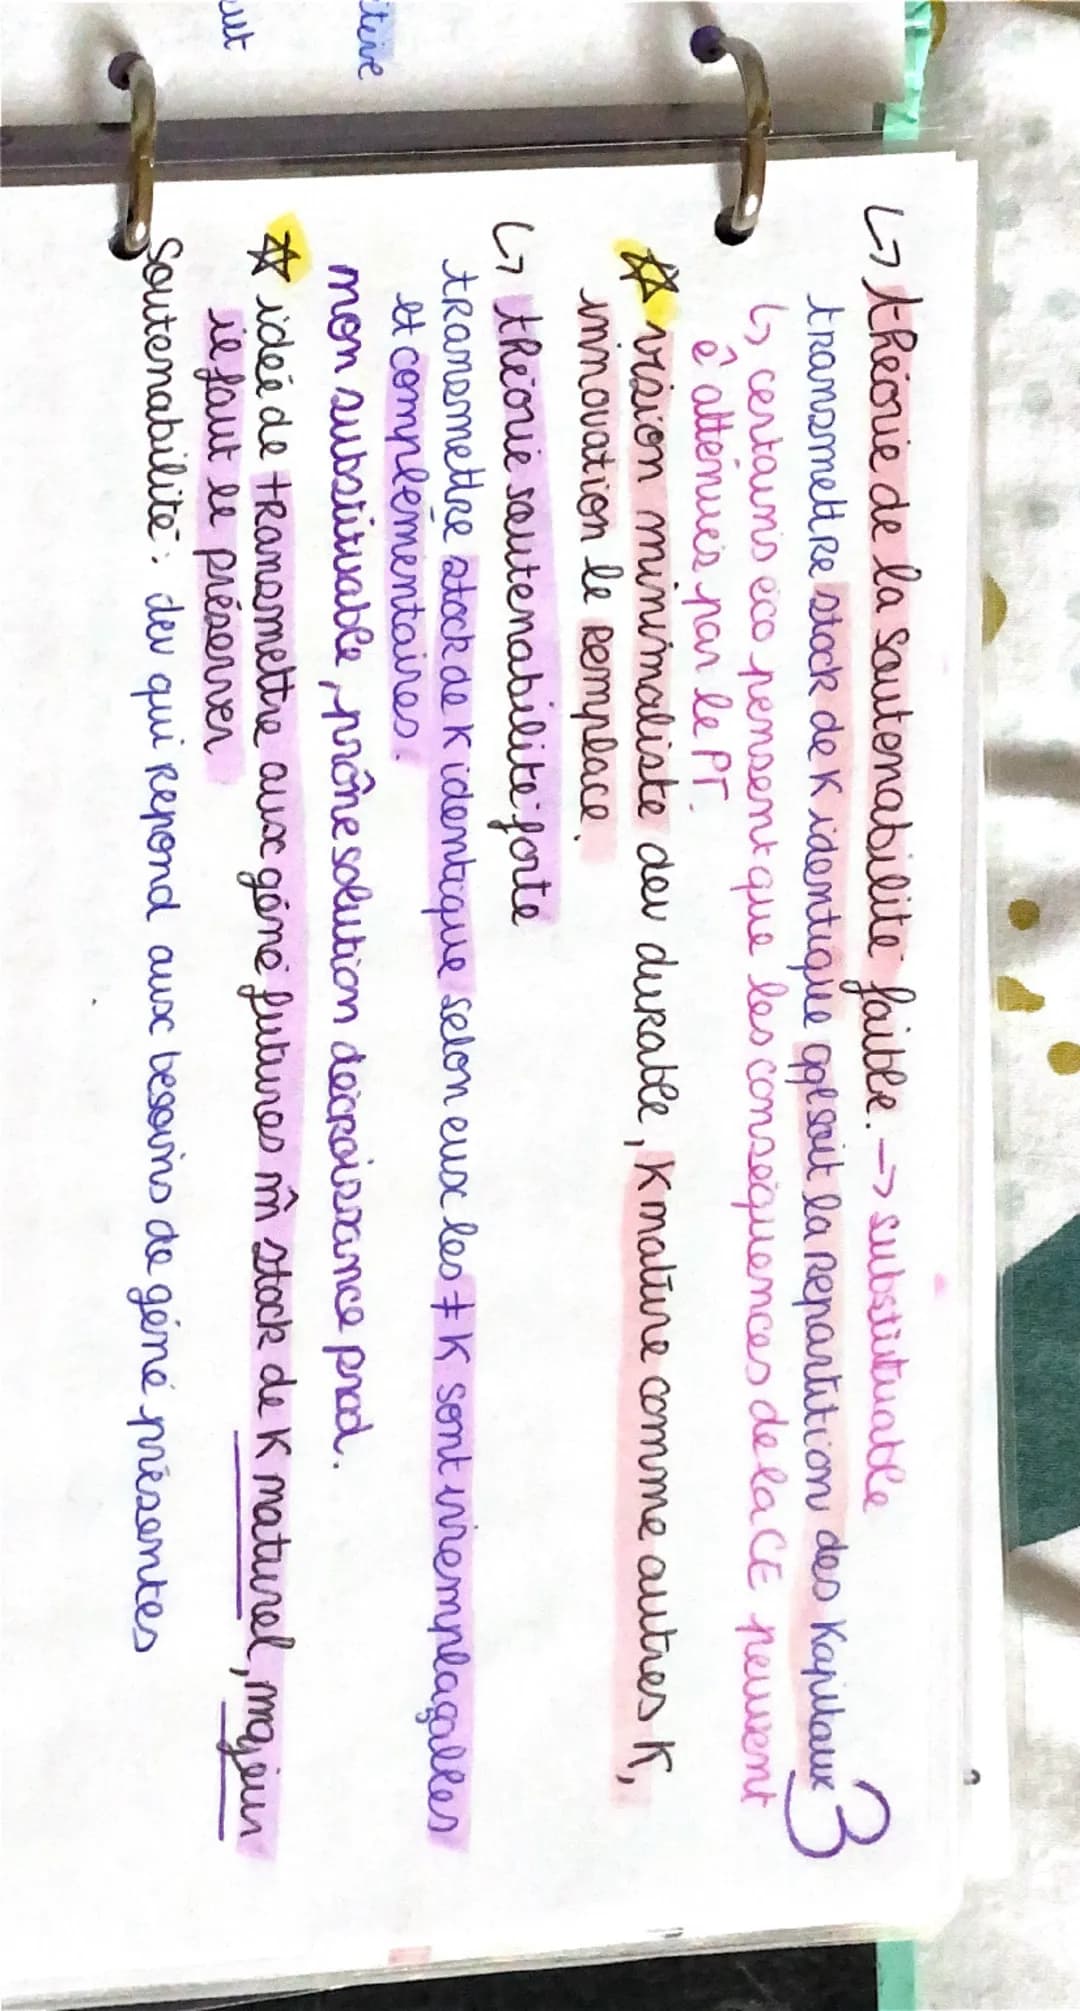 3
↳ théorie de la soutenabilité faible. → substituable
transmettre stock de K identique qql soit la répartition des Kapitaux
↳ certains éco pensent que les conséquences de la CE peuvent
ê atténués par le PT.
☆ vision minimaliste dev durable, K nature comme autres K,
innovation le remplace.
↳ théorie soutenabilité forte
transmettre stock de K identique selon eux les ≠ K sont irremplaçables
et complémentaires.
non substituable, prône solution décroissance prod.
☆ idée de transmettre aux géné futures m̂ stock de K naturel, majeur
ie faut le préserver
Soutenabilité: dev qui répond aux besoins de géné présentes